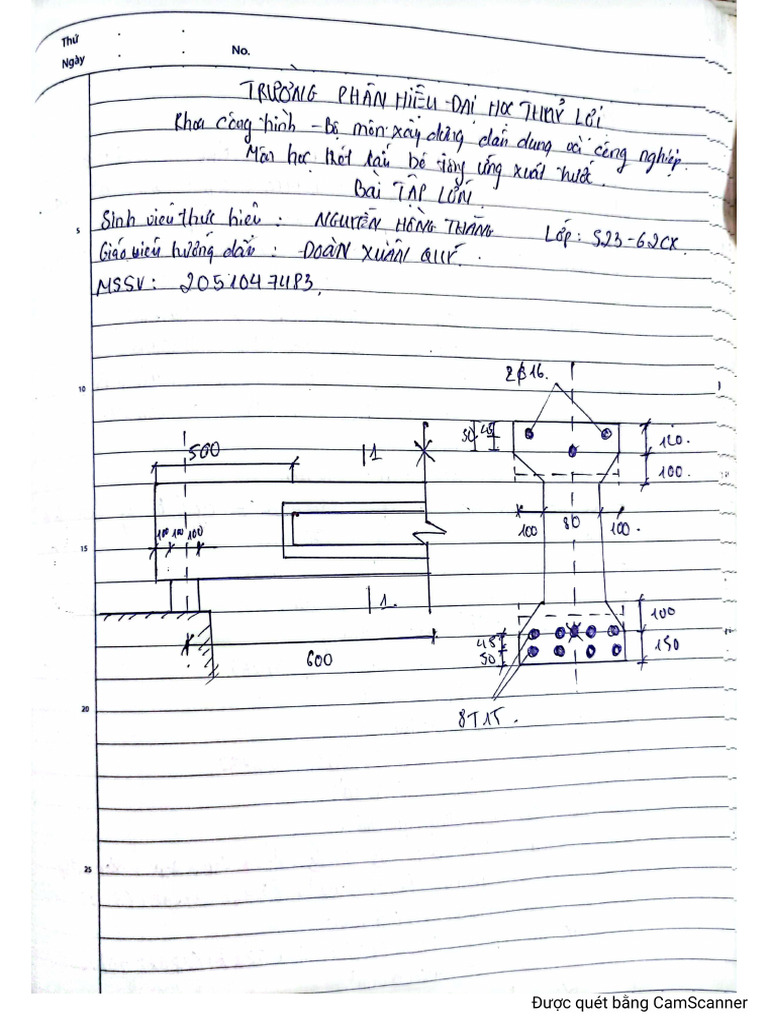 Thứ
Ngày
No.
TRƯỜNG PHÂN HIỆU ĐẠI HỌC THUỶ LỢI
Khoa công trình - Bộ môn xây dựng dân dụng và công nghiệp.
Môn học kết cấu bê tông ứng suất trước.
BÀI TẬP LỚN
Sinh viên thực hiện : NGUYỄN HỒNG THĂNG Lớp: S23-62CX
Giáo viên hướng dẫn : ĐOÀN XUÂN QUÝ.
MSSV: 2051047483.
5
10
15
20
25
2ϕ16.
50 45
120.
100.
500
1
100 100 100
100 80 100.
1.
600
45
50
100
150
8T15.
Được quét bằng CamScanner